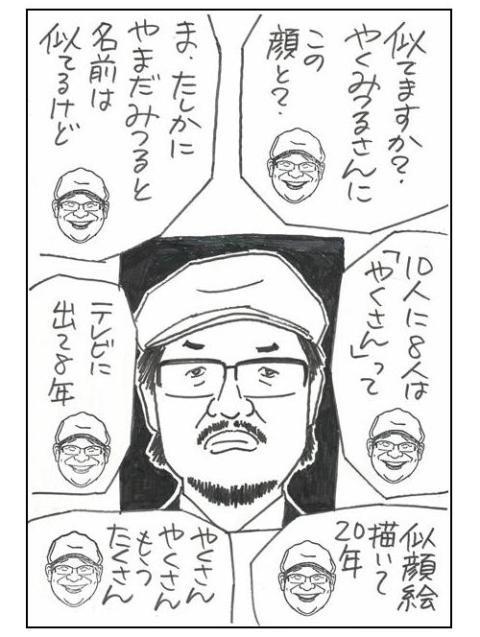 似てますか?
やくみつるさんに
この
顔と?
ま、たしかに
やまだみつると
名前は
似てるけど
10人に8人は
「やくさん」って
テレビに
出て8年
似顔絵
描いて
20年
やくさん
やくさん
もう
たくさん